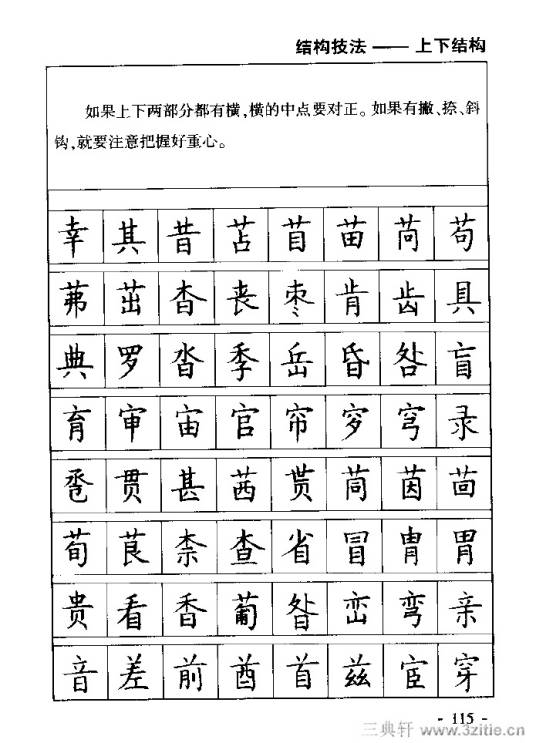 结构技法 —— 上下结构
如果上下两部分都有横，横的中点要对正。如果有撇、捺、斜
钩，就要注意把握好重心。
幸 其 昔 苫 苜 苗 苘 苟
茀 茁 杳 丧 枣 肯 齿 具
典 罗 沓 季 岳 昏 咎 盲
育 审 宙 官 帘 穸 穹 录
卺 贯 甚 茜 贳 茼 茵 茴
荀 茛 柰 查 省 冒 胄 胃
贵 看 香 匍 昝 峦 弯 亲
音 差 前 酋 首 兹 宦 穿
- 115 -
三典轩 www.3zitie.cn